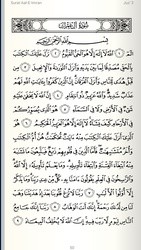 Surah Aal-E-Imran
Juz' 3
سُورَةُ آلِ عِمْرَانَ
بِسْمِ ٱللَّهِ ٱلرَّحْمَٰنِ ٱلرَّحِيمِ
الٓمٓ ١ ٱللَّهُ لَآ إِلَٰهَ إِلَّا هُوَ ٱلْحَىُّ ٱلْقَيُّومُ ٢ نَزَّلَ عَلَيْكَ ٱلْكِتَٰبَ
بِٱلْحَقِّ مُصَدِّقًا لِّمَا بَيْنَ يَدَيْهِ وَأَنزَلَ ٱلتَّوْرَىٰةَ وَٱلْإِنجِيلَ ٣ مِن
قَبْلُ هُدًى لِّلنَّاسِ وَأَنزَلَ ٱلْفُرْقَانَ إِنَّ ٱلَّذِينَ كَفَرُوا۟ بِـَٔايَٰتِ ٱللَّهِ لَهُمْ
عَذَابٌ شَدِيدٌ وَٱللَّهُ عَزِيزٌ ذُو ٱنتِقَامٍ ٤ إِنَّ ٱللَّهَ لَا يَخْفَىٰ عَلَيْهِ
شَىْءٌ فِى ٱلْأَرْضِ وَلَا فِى ٱلسَّمَآءِ ٥ هُوَ ٱلَّذِى يُصَوِّرُكُمْ
فِى ٱلْأَرْحَامِ كَيْفَ يَشَآءُ لَآ إِلَٰهَ إِلَّا هُوَ ٱلْعَزِيزُ ٱلْحَكِيمُ ٦
هُوَ ٱلَّذِىٓ أَنزَلَ عَلَيْكَ ٱلْكِتَٰبَ مِنْهُ ءَايَٰتٌ مُّحْكَمَٰتٌ هُنَّ أُمُّ ٱلْكِتَٰبِ
وَأُخَرُ مُتَشَٰبِهَٰتٌ فَأَمَّا ٱلَّذِينَ فِى قُلُوبِهِمْ زَيْغٌ فَيَتَّبِعُونَ مَا
تَشَٰبَهَ مِنْهُ ٱبْتِغَآءَ ٱلْفِتْنَةِ وَٱبْتِغَآءَ تَأْوِيلِهِۦ وَمَا يَعْلَمُ تَأْوِيلَهُۥٓ
إِلَّا ٱللَّهُ وَٱلرَّٰسِخُونَ فِى ٱلْعِلْمِ يَقُولُونَ ءَامَنَّا بِهِۦ كُلٌّ مِّنْ عِندِ رَبِّنَا وَمَا يَذَّكَّرُ
إِلَّآ أُو۟لُوا۟ ٱلْأَلْبَٰبِ ٧ رَبَّنَا لَا تُزِغْ قُلُوبَنَا بَعْدَ إِذْ هَدَيْتَنَا وَهَبْ
لَنَا مِن لَّدُنكَ رَحْمَةً إِنَّكَ أَنتَ ٱلْوَهَّابُ ٨ رَبَّنَآ إِنَّكَ جَامِعُ
ٱلنَّاسِ لِيَوْمٍ لَّا رَيْبَ فِيهِ إِنَّ ٱللَّهَ لَا يُخْلِفُ ٱلْمِيعَادَ ٩
50